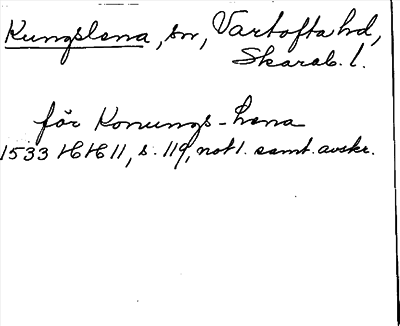 Kungslena, sn, Vartofta hd,
Skarab. l.
för Konungs-Lena
1533 HH 11, s. 119, not 1. samt. avskr.